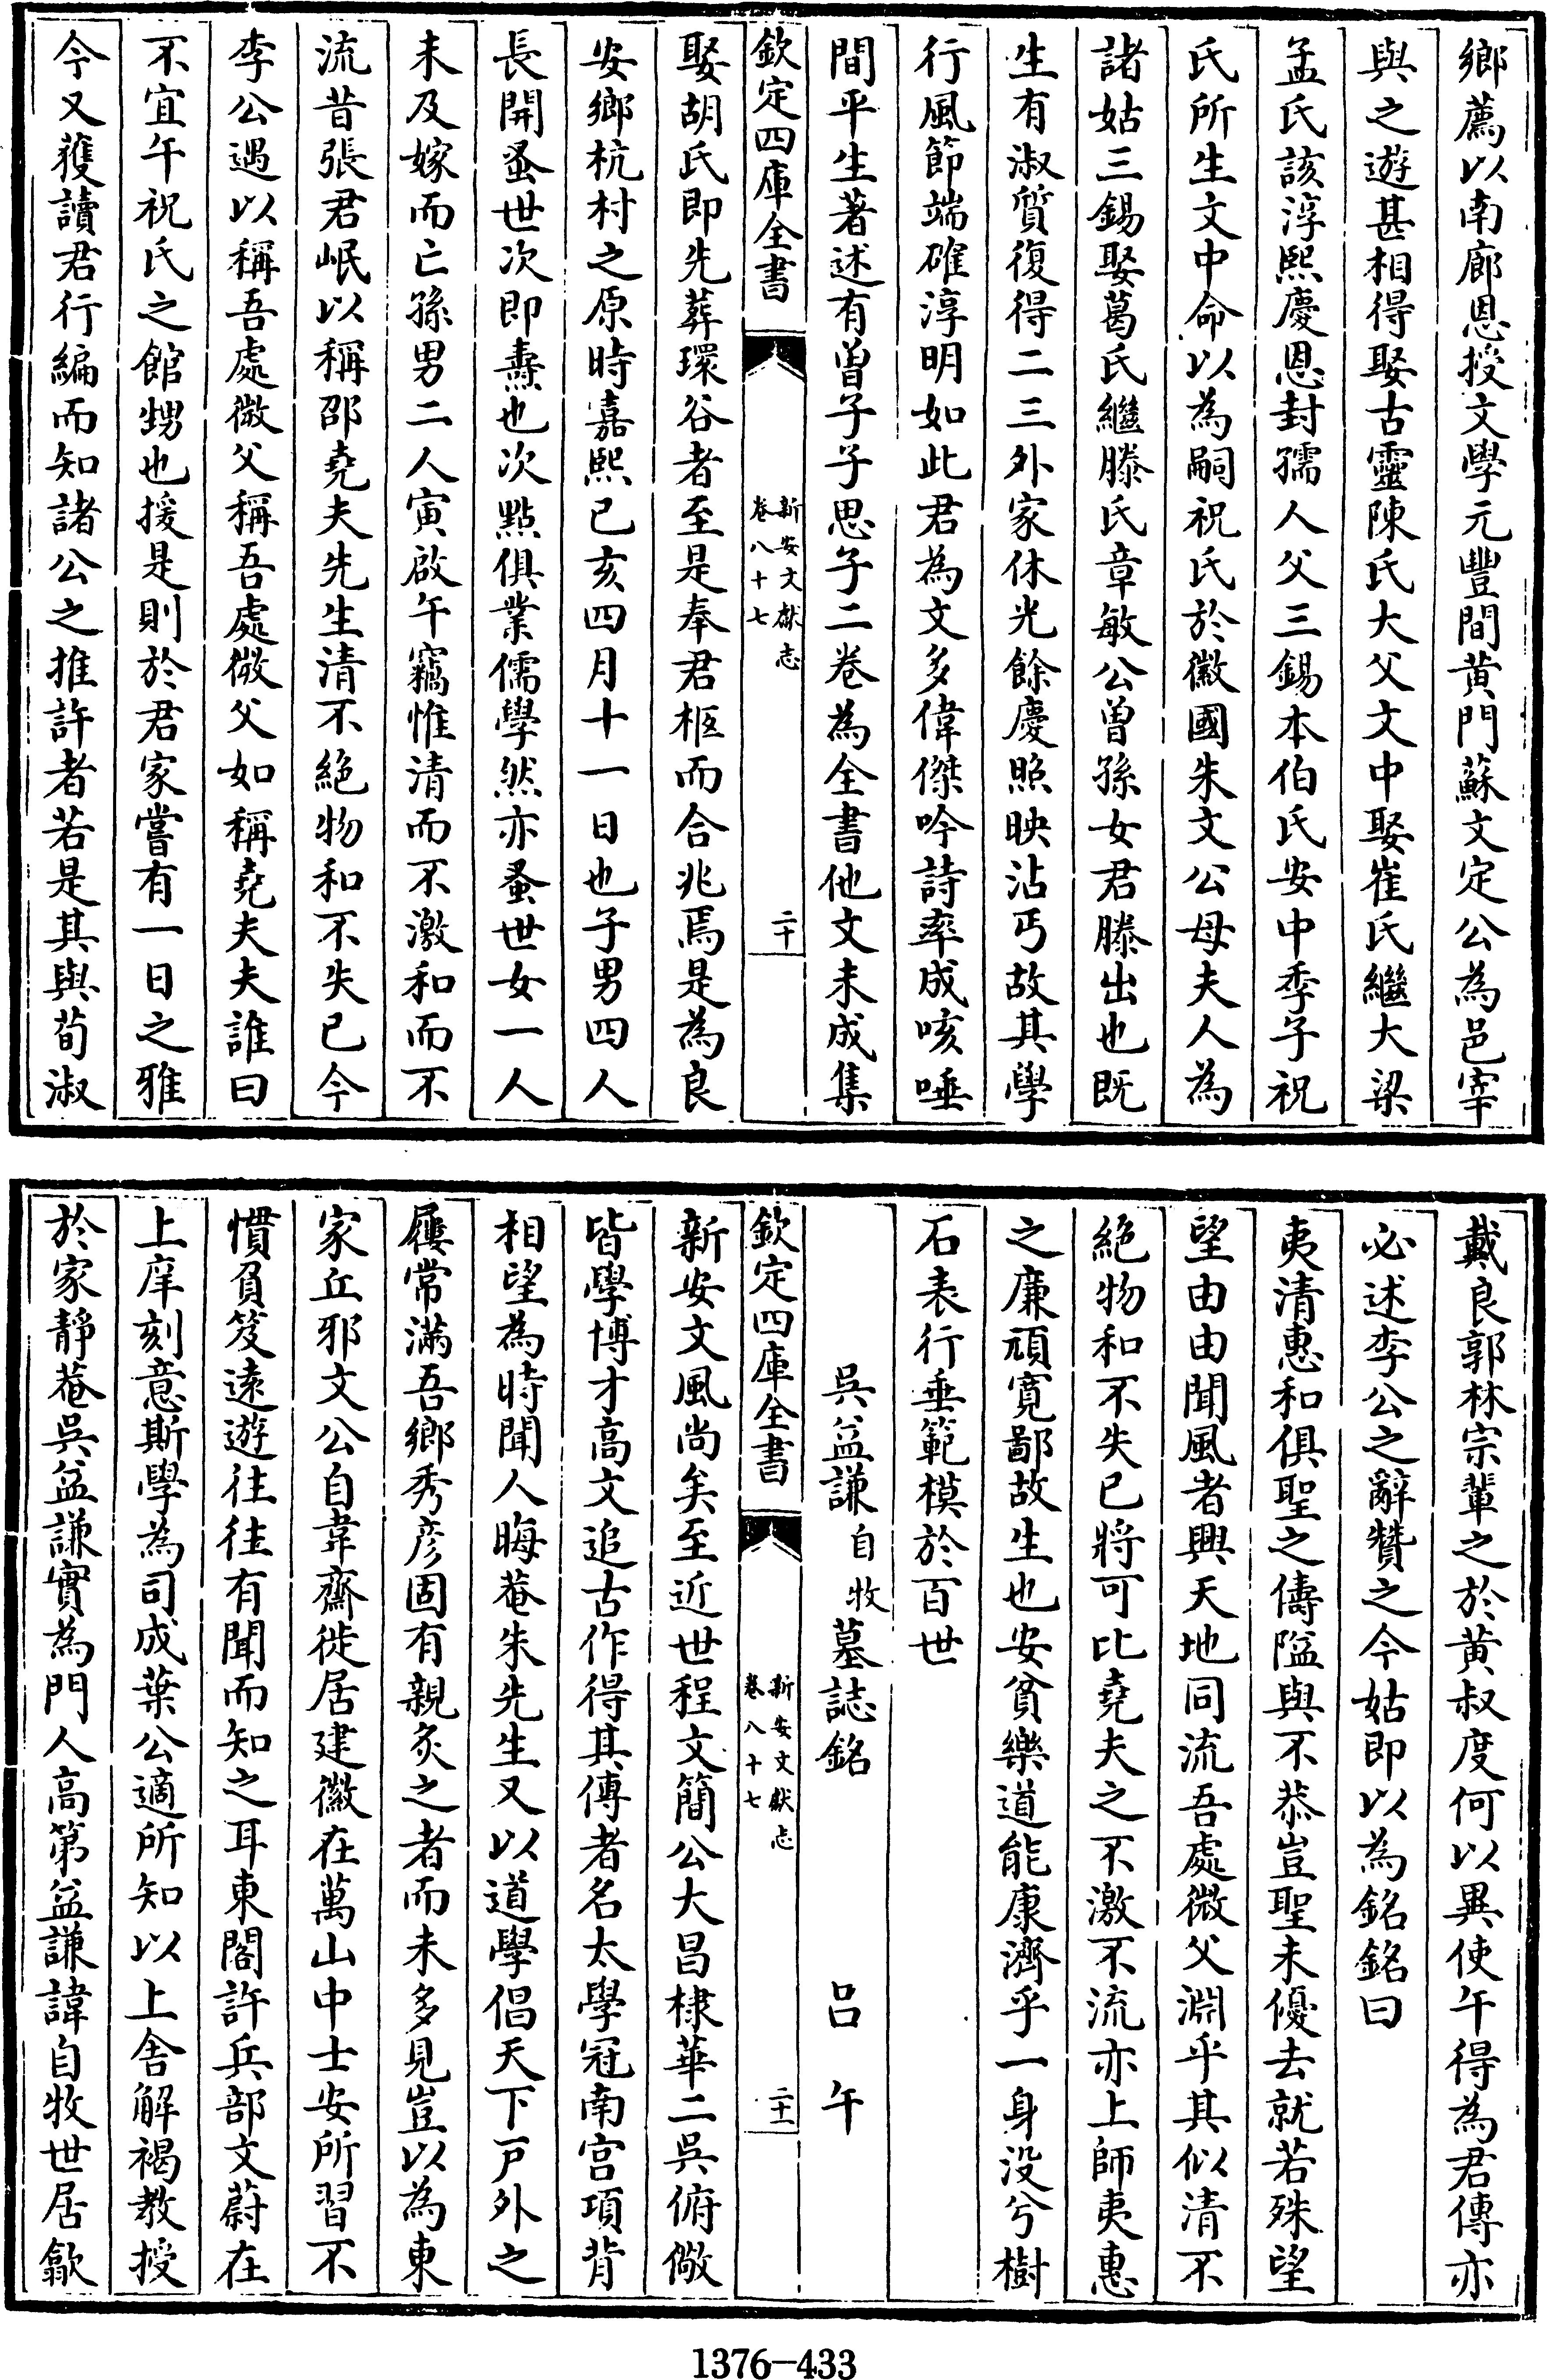 鄉薦以南廊恩授文學元豐間黄門蘇文定公為邑宰
與之遊甚相得娶古靈陳氏大父文中娶崔氏繼大梁
孟氏該淳熙慶恩封孺人父三錫本伯氏安中季子祝
氏所生文中命以為嗣祝氏於徽國朱文公母夫人為
諸姑三錫娶葛氏繼滕氏章敏公曾孫女君滕出也既
生有淑質復得二三外家休光餘慶照映沾丐故其學
行風節端確淳明如此君為文多偉傑吟詩率成咳唾
間平生著述有曾子子思子二卷為全書他文未成集
欽定四庫全書
新安文獻志
卷八十七
二十
娶胡氏即先葬環谷者至是奉君柩而合兆焉是為良
安鄉杭村之原時嘉熙己亥四月十一日也子男四人
長開蚤世次即燾也次點俱業儒學然亦蚤世女一人
未及嫁而亡孫男二人寅啟午竊惟清而不激和而不
流昔張君岷以稱邵堯夫先生清不絕物和不失已今
李公遇以稱吾處微父稱吾處微父如稱堯夫夫誰曰
不宜午祝氏之館甥也援是則於君家嘗有一日之雅
今又獲讀君行編而知諸公之推許者若是其與荀淑
戴良郭林宗輩之於黄叔度何以異使午得為君傳亦
必述李公之辭贊之今姑即以為銘銘曰
夷清惠和俱聖之儔隘與不恭豈聖未優去就若殊望
望由由聞風者興天地同流吾處微父淵乎其似清不
絕物和不失已將可比堯夫之不激不流亦上師夷惠
之廉頑寛鄙故生也安貧樂道能康濟乎一身没兮樹
石表行垂範模於百世
吳益謙自牧墓誌銘 吕午
欽定四庫全書
新安文獻志
卷八十七
二十一
新安文風尚矣至近世程文簡公大昌棣華二吳俯儆
皆學博才高文追古作得其傳者名太學冠南宫項背
相望為時聞人晦菴朱先生又以道學倡天下戸外之
屨常滿吾鄉秀彦固有親炙之者而未多見豈以為東
家丘邪文公自韋齋徙居建徽在萬山中士安所習不
慣負笈遠遊往往有聞而知之耳東閣許兵部文蔚在
上庠刻意斯學為司成葉公適所知以上舍解褐教授
於家靜菴吳益謙實為門人高第益謙諱自牧世居歙
1376-433